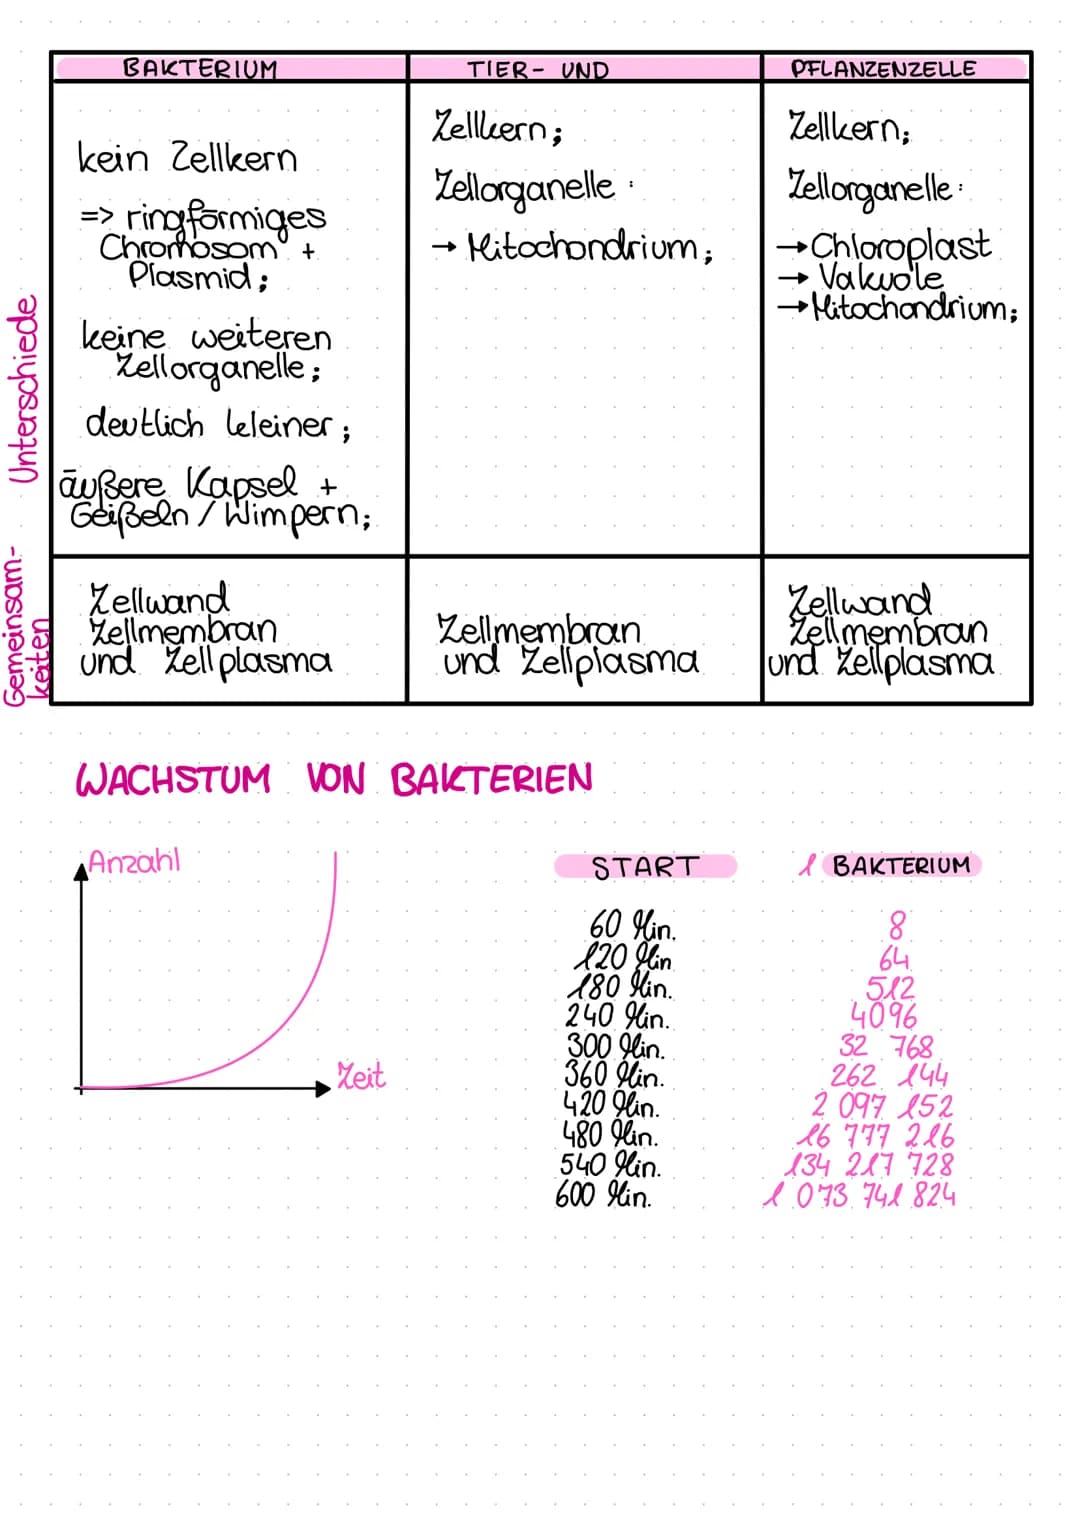 BAKTERIUM
TIER- UND
PFLANZENZELLE
Unterschiede
kein Zellkern
=> ringförmiges
Chromosom +
Plasmid;
keine weiteren
Zellorganelle;
deutlich kleiner;
äußere Kapsel +
Geißeln / Wimpern;
Zellkern;
Zellorganelle:
→ Mitochondrium;
Zellkern;
Zellorganelle:
→ Chloroplast
→ Vakuole
→ Mitochondrium;
Gemeinsam-
keiten
Zellwand
Zellmembran
und Zellplasma
Zellmembran
und Zellplasma
Zellwand
Zellmembran
und Zellplasma
WACHSTUM VON BAKTERIEN
Anzahl
Zeit
START 1 BAKTERIUM
60 Min. 8
120 Min 64
180 Min. 512
240 Min. 4096
300 Min. 32 768
360 Min. 262 144
420 Min. 2 097 152
480 Min. 16 777 216
540 Min. 134 217 728
600 Min. 1 073 741 824